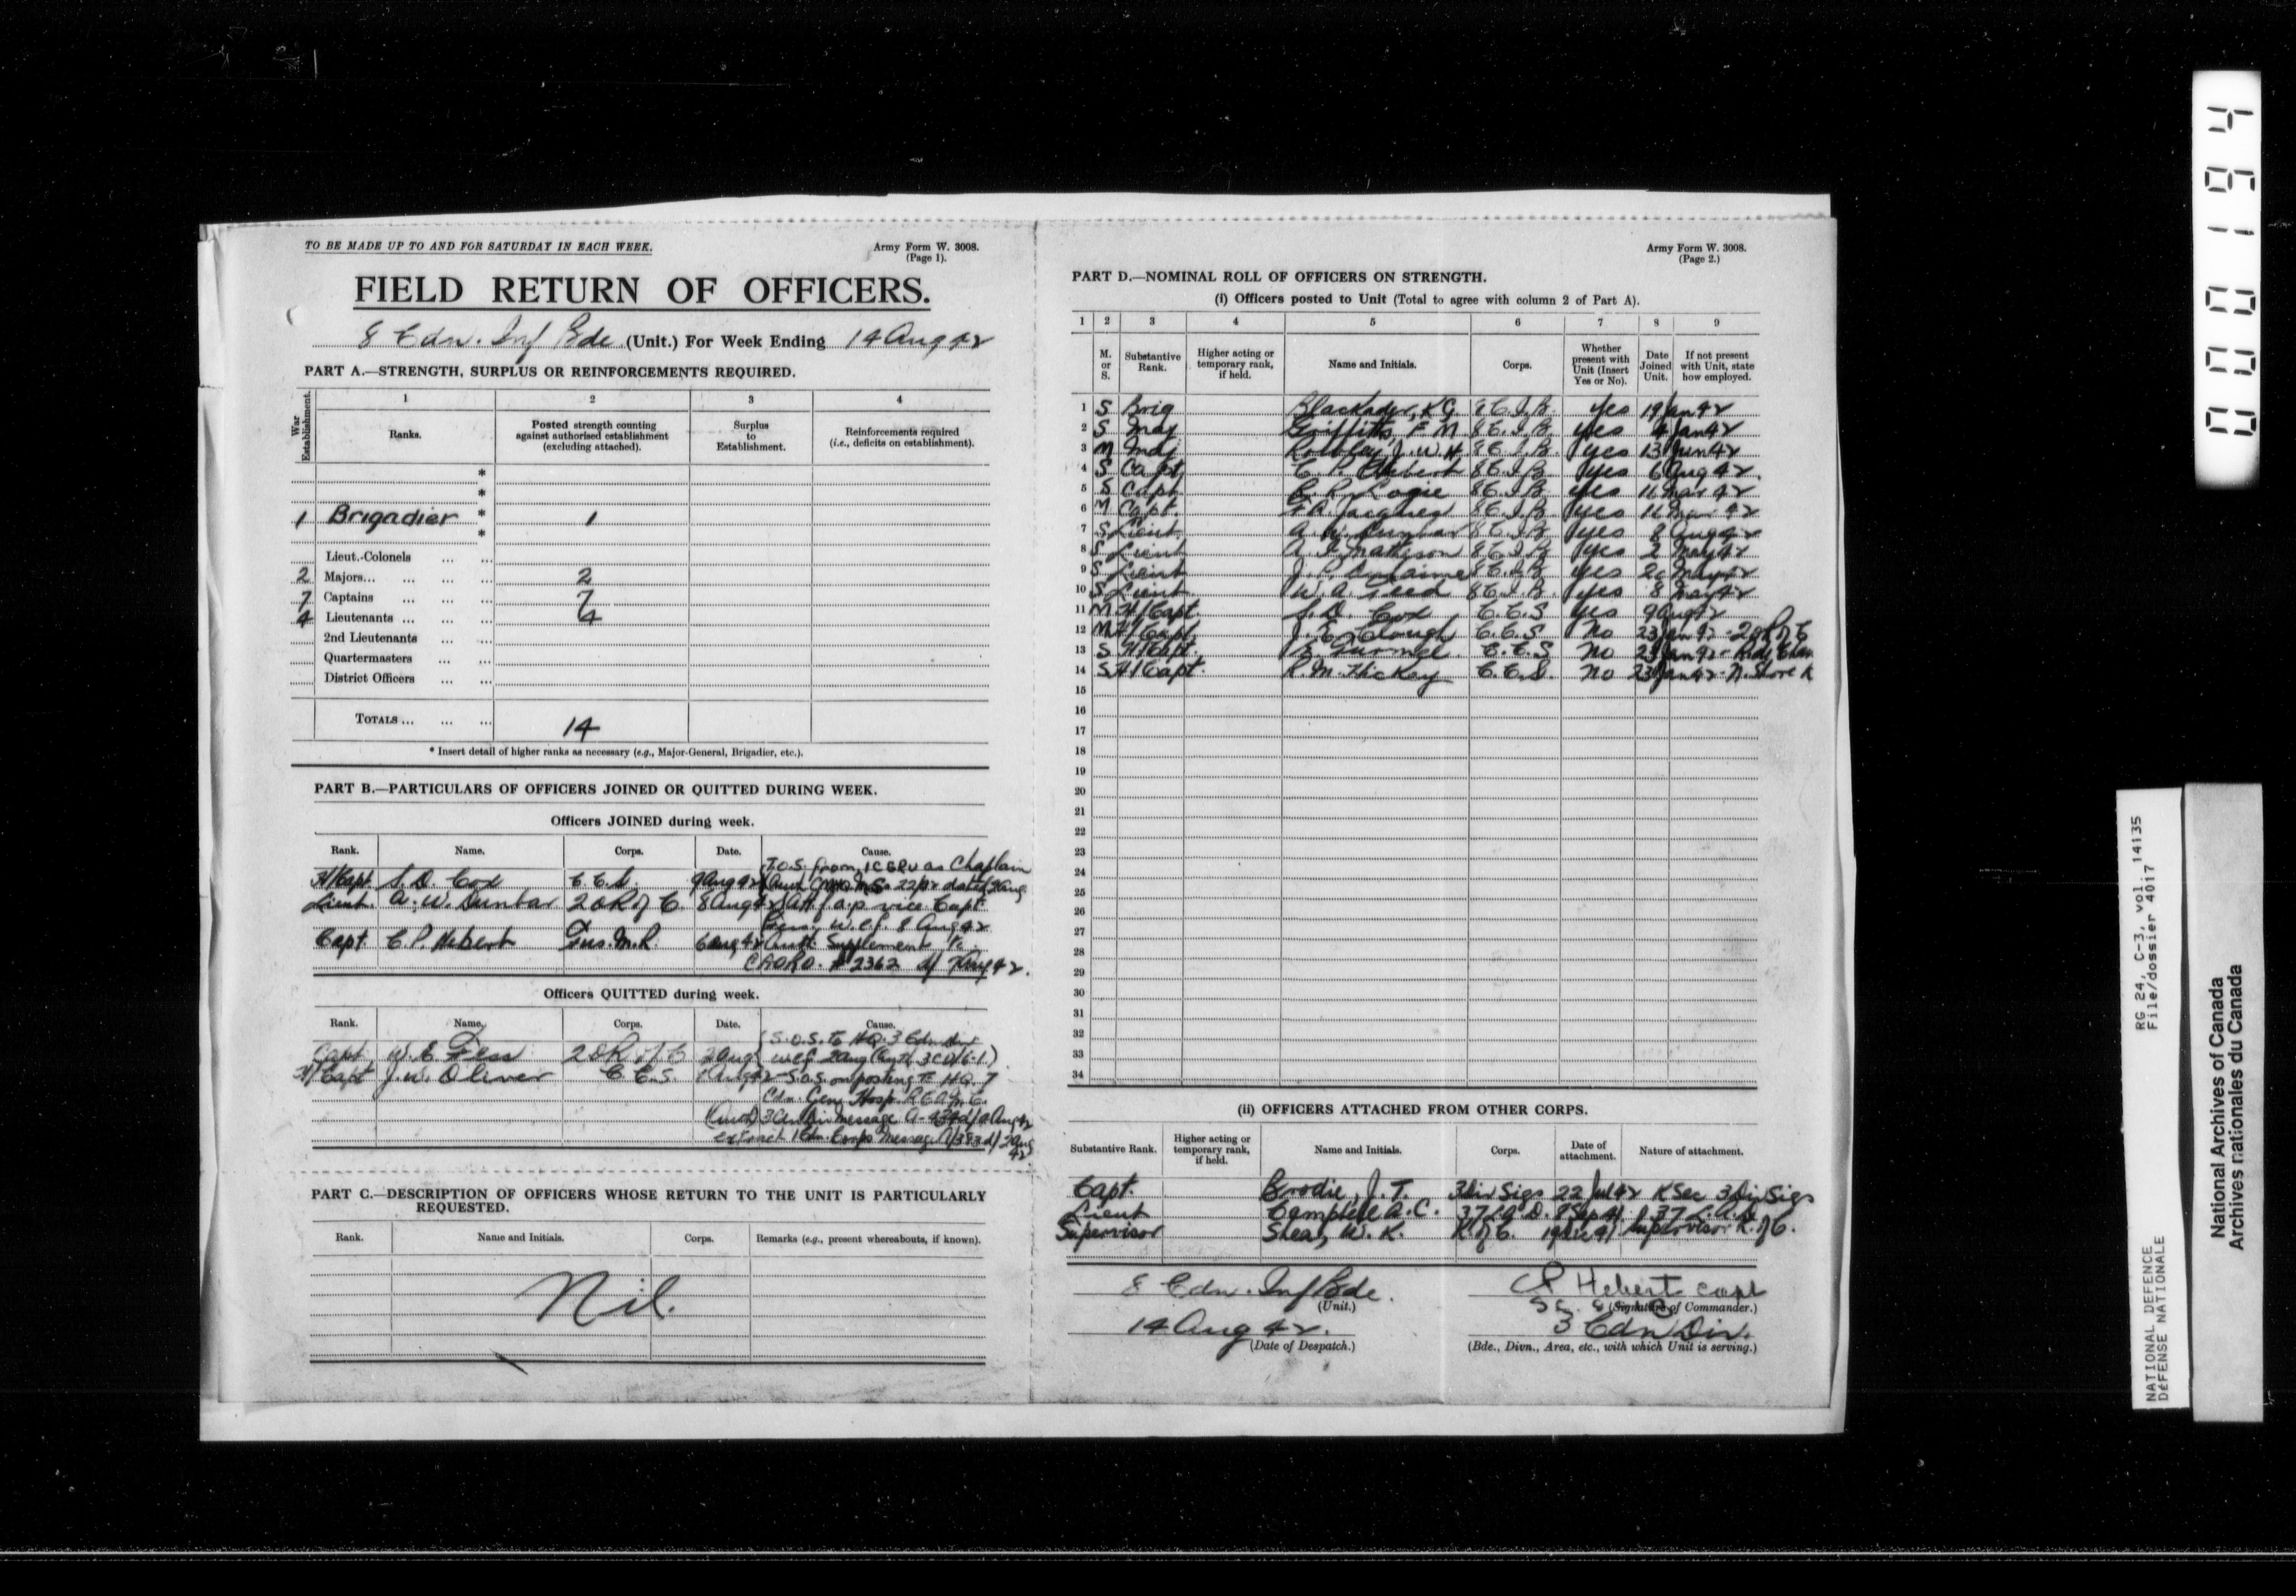 TO BE MADE UP TO AND FOR SATURDAY IN EACH WEEK.
Army Form W. 3008.
(Page 1).
FIELD RETURN OF OFFICERS.
8 Cdn. Inf Bde (Unit.) For Week Ending 14 Aug 42
PART A.—STRENGTH, SURPLUS OR REINFORCEMENTS REQUIRED.
War Establishment.
1 2 3 4
Ranks.
Posted strength counting against authorised establishment (excluding attached).
Surplus to Establishment.
Reinforcements required (i.e., deficits on establishment).
*
*
1 Brigadier * 1
*
Lieut.-Colonels ... ...
2 Majors... ... ... ... 2
7 Captains ... ... ... 7
4 Lieutenants ... ... ... 4
2nd Lieutenants ... ...
Quartermasters ... ...
District Officers ... ...
TOTALS ... ... ... 14
* Insert detail of higher ranks as necessary (e.g., Major-General, Brigadier, etc.).
PART B.—PARTICULARS OF OFFICERS JOINED OR QUITTED DURING WEEK.
Officers JOINED during week.
Rank. Name. Corps. Date. Cause.
T.O.S. from 1 CGRU as Chaplain
H/Capt S.D. Cox C.C.S. 9 Aug 42
Lieut. A. W. Dunbar 2 O R of C. 8 Aug 42 Att. f.a.p. vice Capt
W.e.f. 8 Aug 42
Capt. C. P. Hebert Fus. M.R. 6 Aug 42 Auth. Supplement to
CARO. # 2362 d/ Aug 42.
Officers QUITTED during week.
Rank. Name. Corps. Date. Cause.
S.O.S. to HQ. 3 Cdn Div
Capt W. E. Fess 2 O R of C 2 Aug w.e.f. 2 Aug
H/Capt J. W. Oliver C.C.S. Aug 42 - S.O.S. on posting to HQ. 7
Cdn. Gen. Hosp. R.C.A.M.C.
(Auth) 3 Cdn Div message
1 Cdn. Corps Message
42
PART C.—DESCRIPTION OF OFFICERS WHOSE RETURN TO THE UNIT IS PARTICULARLY REQUESTED.
Rank. Name and Initials. Corps. Remarks (e.g., present whereabouts, if known).
Nil.
Army Form W. 3008.
(Page 2.)
PART D.—NOMINAL ROLL OF OFFICERS ON STRENGTH.
(i) Officers posted to Unit (Total to agree with column 2 of Part A).
1 2 3 4 5 6 7 8 9
M. or S.
Substantive Rank.
Higher acting or temporary rank, if held.
Name and Initials.
Corps.
Whether present with Unit (Insert Yes or No).
Date Joined Unit.
If not present with Unit, state how employed.
1 S Brig Blackader, K G. 8 C.I.B. Yes 19 Jan 42
2 S Maj Griffiths F M 8 C.I.B. Yes 4 Jan 42
3 M Maj J. W. H 8 C.I.B. Yes 13 Jun 42
4 S Capt C. P. Hebert 8 C.I.B. Yes 6 Aug 42
5 S Capt Logie 8 C.I.B. Yes 11 Mar 42
6 M Capt. Jacques 8 C.I.B. Yes 11 42
7 S Lieut A. W. Dunbar 8 C.I.B. Yes 8 Aug 42
8 S Lieut A. Matheson 8 C.I.B. Yes 2 May 42
9 S Lieut J. P. 8 C.I.B. Yes 20 May 42
10 S Lieut W. A. Teed 8 C.I.B. Yes 8 May 42
11 M H/Capt. S. D. Cox C.C.S Yes 9 Aug 42
12 M H/Capt. J. E. Clough C.C.S No 23 Jan 42 - 2 O R of C
13 S H/Capt. C.C.S No 23 Jan 42 - R de Chau
14 S H/Capt. R. M. Hickey C.C.S. No 23 Jan 42 - N. Shore R
15
16
17
18
19
20
21
22
23
24
25
26
27
28
29
30
31
32
33
34
(ii) OFFICERS ATTACHED FROM OTHER CORPS.
Substantive Rank.
Higher acting or temporary rank, if held.
Name and Initials.
Corps.
Date of attachment.
Nature of attachment.
Capt. Brodie, J. T. 3 Div Sigs 22 Jul 42 K Sec 3 Div Sigs
Lieut Campbell A. C. 37 L.A.D. 8 Sep 41 37 L.A.D.
Supervisor Shea, W. K. K of C. 19 Dec 41 Supervisor K. of C.
8 Cdn. Inf Bde.
(Unit.)
CP Hebert capt
(Signature of Commander.)
14 Aug 42.
(Date of Despatch.)
3 Cdn Div.
(Bde., Divn., Area, etc., with which Unit is serving.)
000194
RG 24, C-3, vol. 14135
File/dossier 4017
NATIONAL DEFENCE
DÉFENSE NATIONALE
National Archives of Canada
Archives nationales du Canada